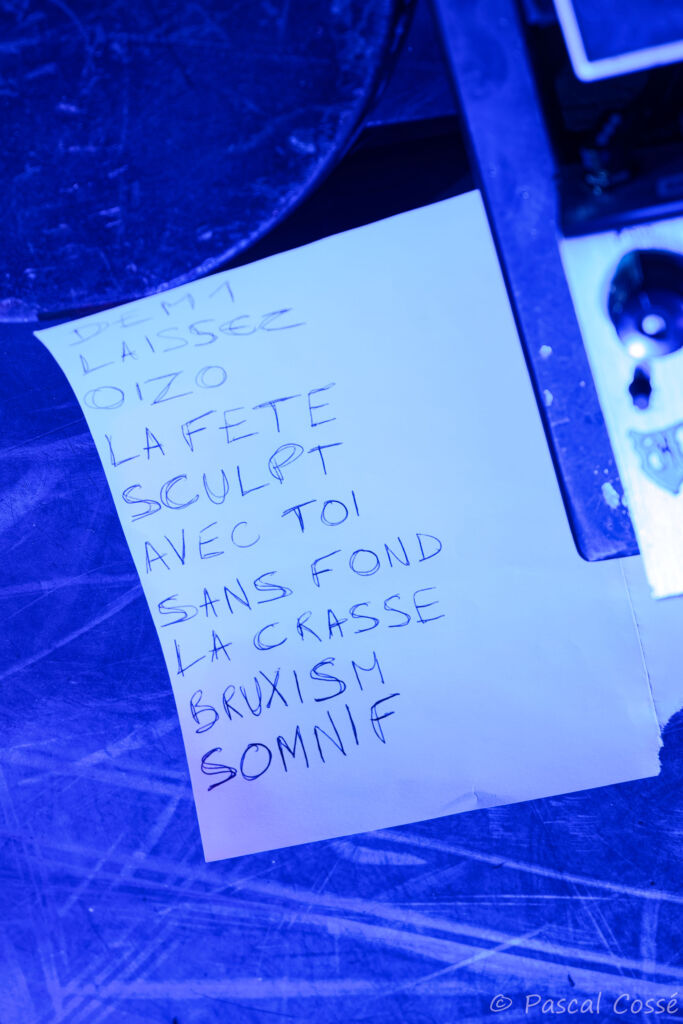 DEM1
LAISSEZ
OIZO
LA FETE
SCULPT
AVEC TOI
SANS FOND
LA CRASSE
BRUXISM
SOMNIF
© Pascal Cossé